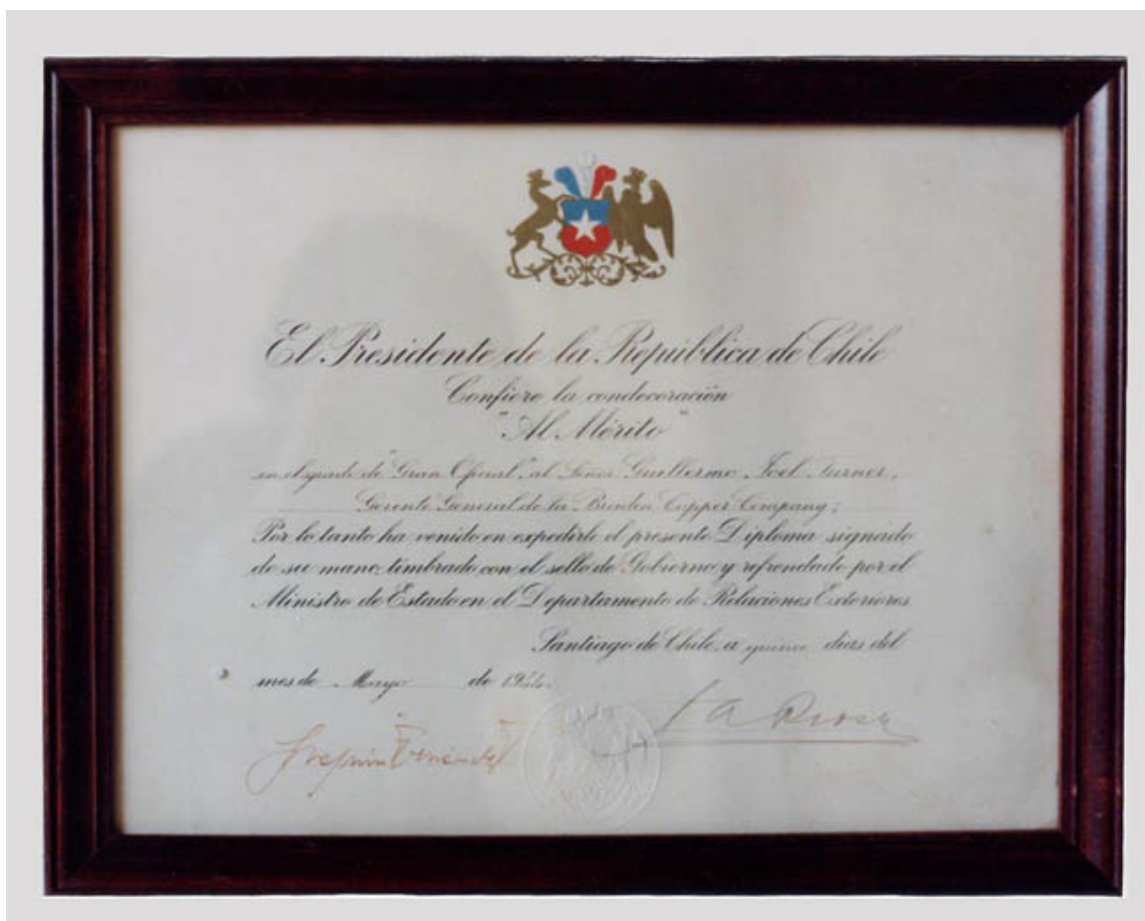 El Presidente de la República de Chile
Confiere la condecoración
"Al Mérito"
en el grado de "Gran Oficial", al Señor Guillermo Joel Turner,
Gerente General de la Braden Copper Company;
Por lo tanto ha venido en expedirle el presente Diploma signado
de su mano, timbrado con el sello de Gobierno y refrendado por el
Ministro de Estado en el Departamento de Relaciones Exteriores.
Santiago de Chile, a quince días del
mes de Mayo de 1944.
J A Rios